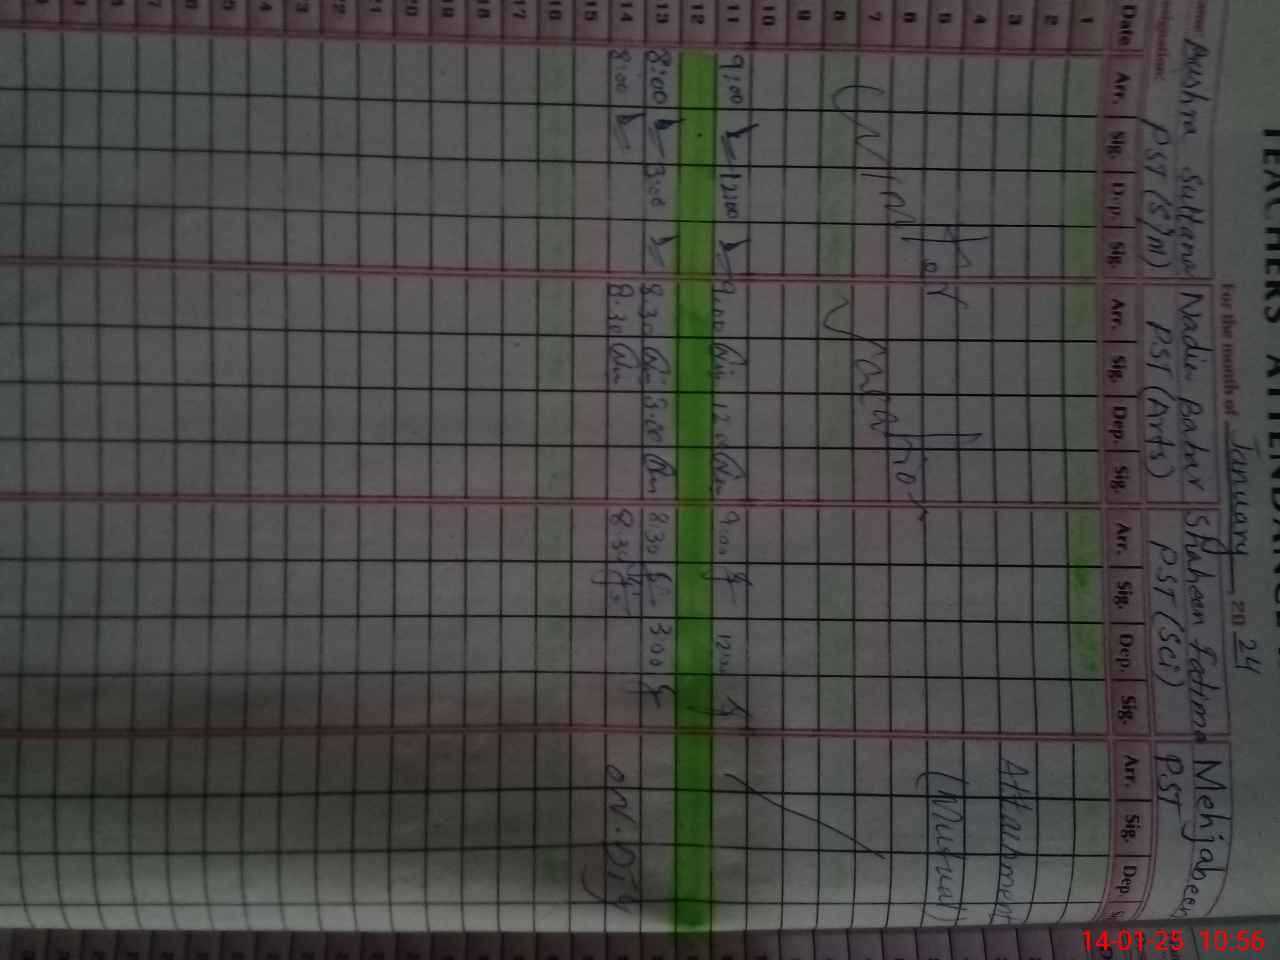 TEACHERS ATTENDANCE
For the month of January 2024
Sultana Nadia Babar Shaheen Fatima Mehjabeen
PST (S/M) PST (Arts) PST (Sci) PST
Date Arr. Sig. Dep. Sig. Arr. Sig. Dep. Sig. Arr. Sig. Dep. Sig. Arr. Sig. Dep.
1
2
3 Attachment
4
5 (Mutual)
6
7
8 Winter Vacation
9
10
11 9:00 12:00 9:00 12:00 9:00 12:00
12
13 8:00 3:00 8:30 3:00 8:30 3:00
14 8:00 8:30 8:30 ON.
15
16
17
18
19
20
21
22
23
24
25
26
27
28
14-01-25 10:56